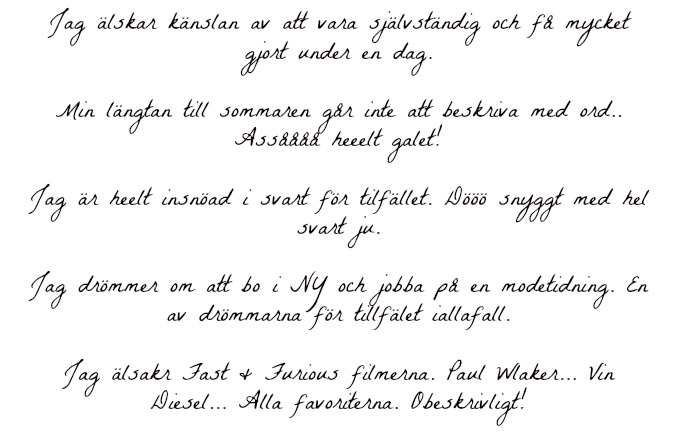 Jag älskar känslan av att vara självständig och få mycket
gjort under en dag.
Min längtan till sommaren går inte att beskriva med ord..
Assåååå heeelt galet!
Jag är heelt insnöad i svart för tilfället. Dööö snyggt med hel
svart ju.
Jag drömmer om att bo i NY och jobba på en modetidning. En
av drömmarna för tillfälet iallafall.
Jag älsakr Fast & Furious filmerna. Paul Wlaker... Vin
Diesel... Alla favoriterna. Obeskrivligt!